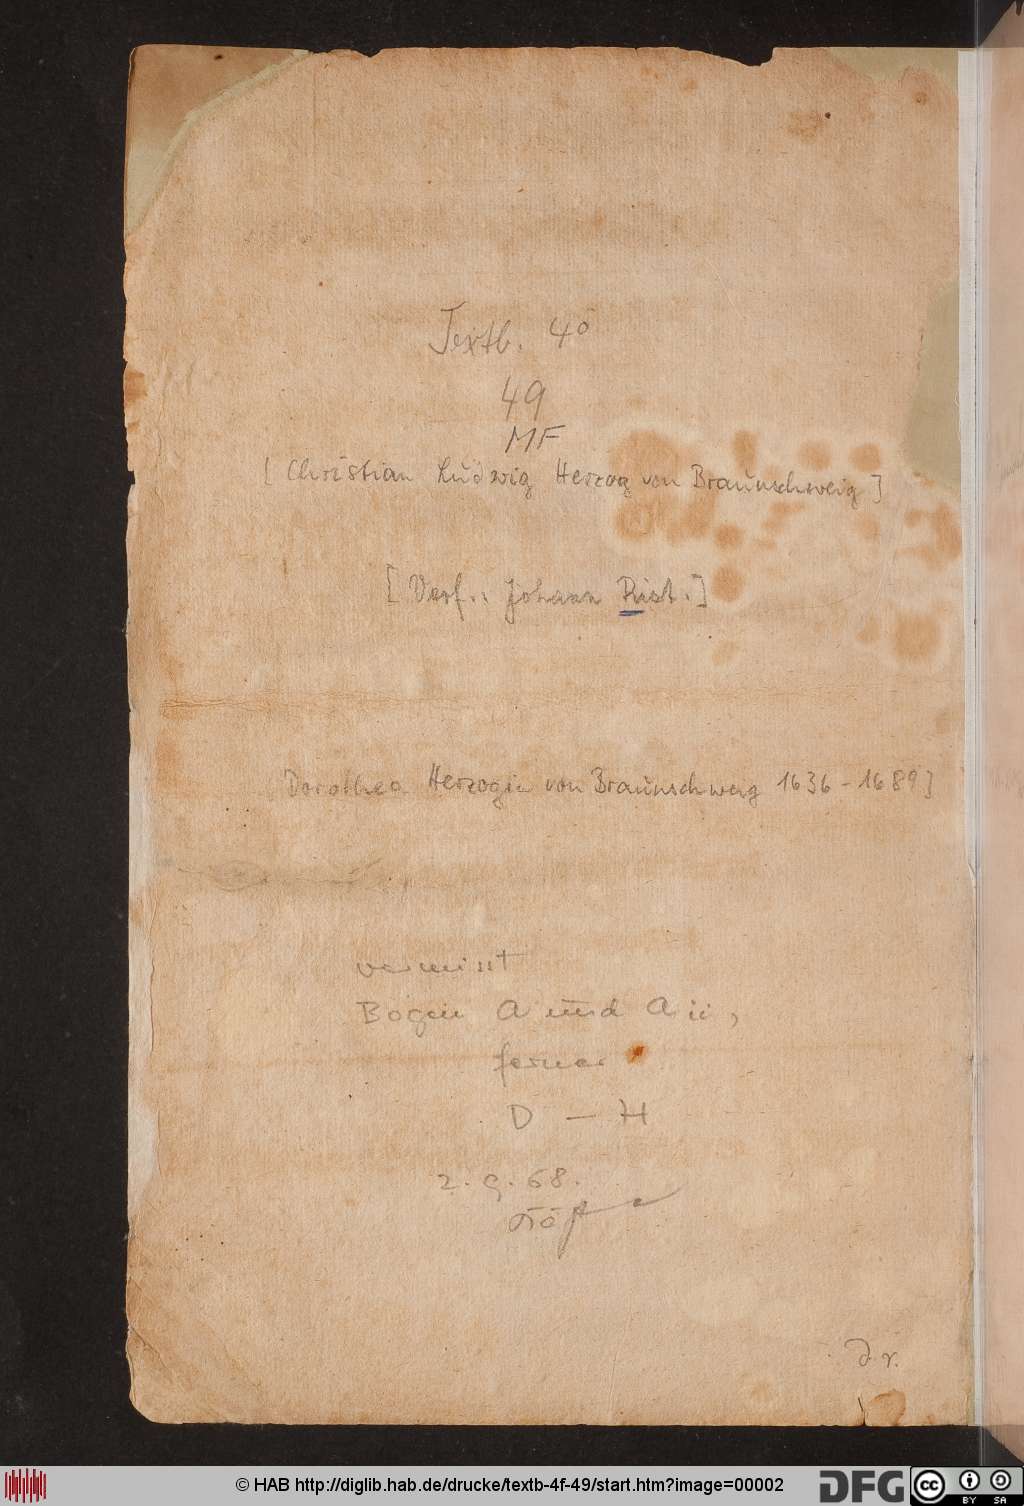 Textb. 4º
49
MF
[Christian Ludwig Herzog von Braunschweig]
[Verf.: Johann Rist.]
[Dorothea Herzogin von Braunschweig 1636-1689]
vermisst
Bogen A und A ii,
ferner
D – H
2. 9. 68.
d. r.
© HAB http://diglib.hab.de/drucke/textb-4f-49/start.htm?image=00002
DFG
cc
BY SA